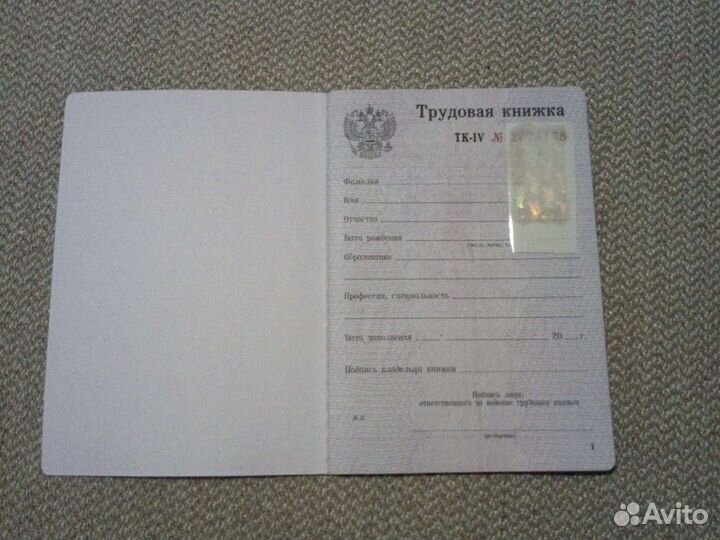 Трудовая книжка
ТК-IV №
Фамилия
Имя
Отчество
Дата рождения
Образование
Профессия, специальность
Дата заполнения 20 г.
Подпись владельца книжки
Подпись лица,
ответственного за ведение трудовых книжек
М.П.
(разборчиво)
1
Avito